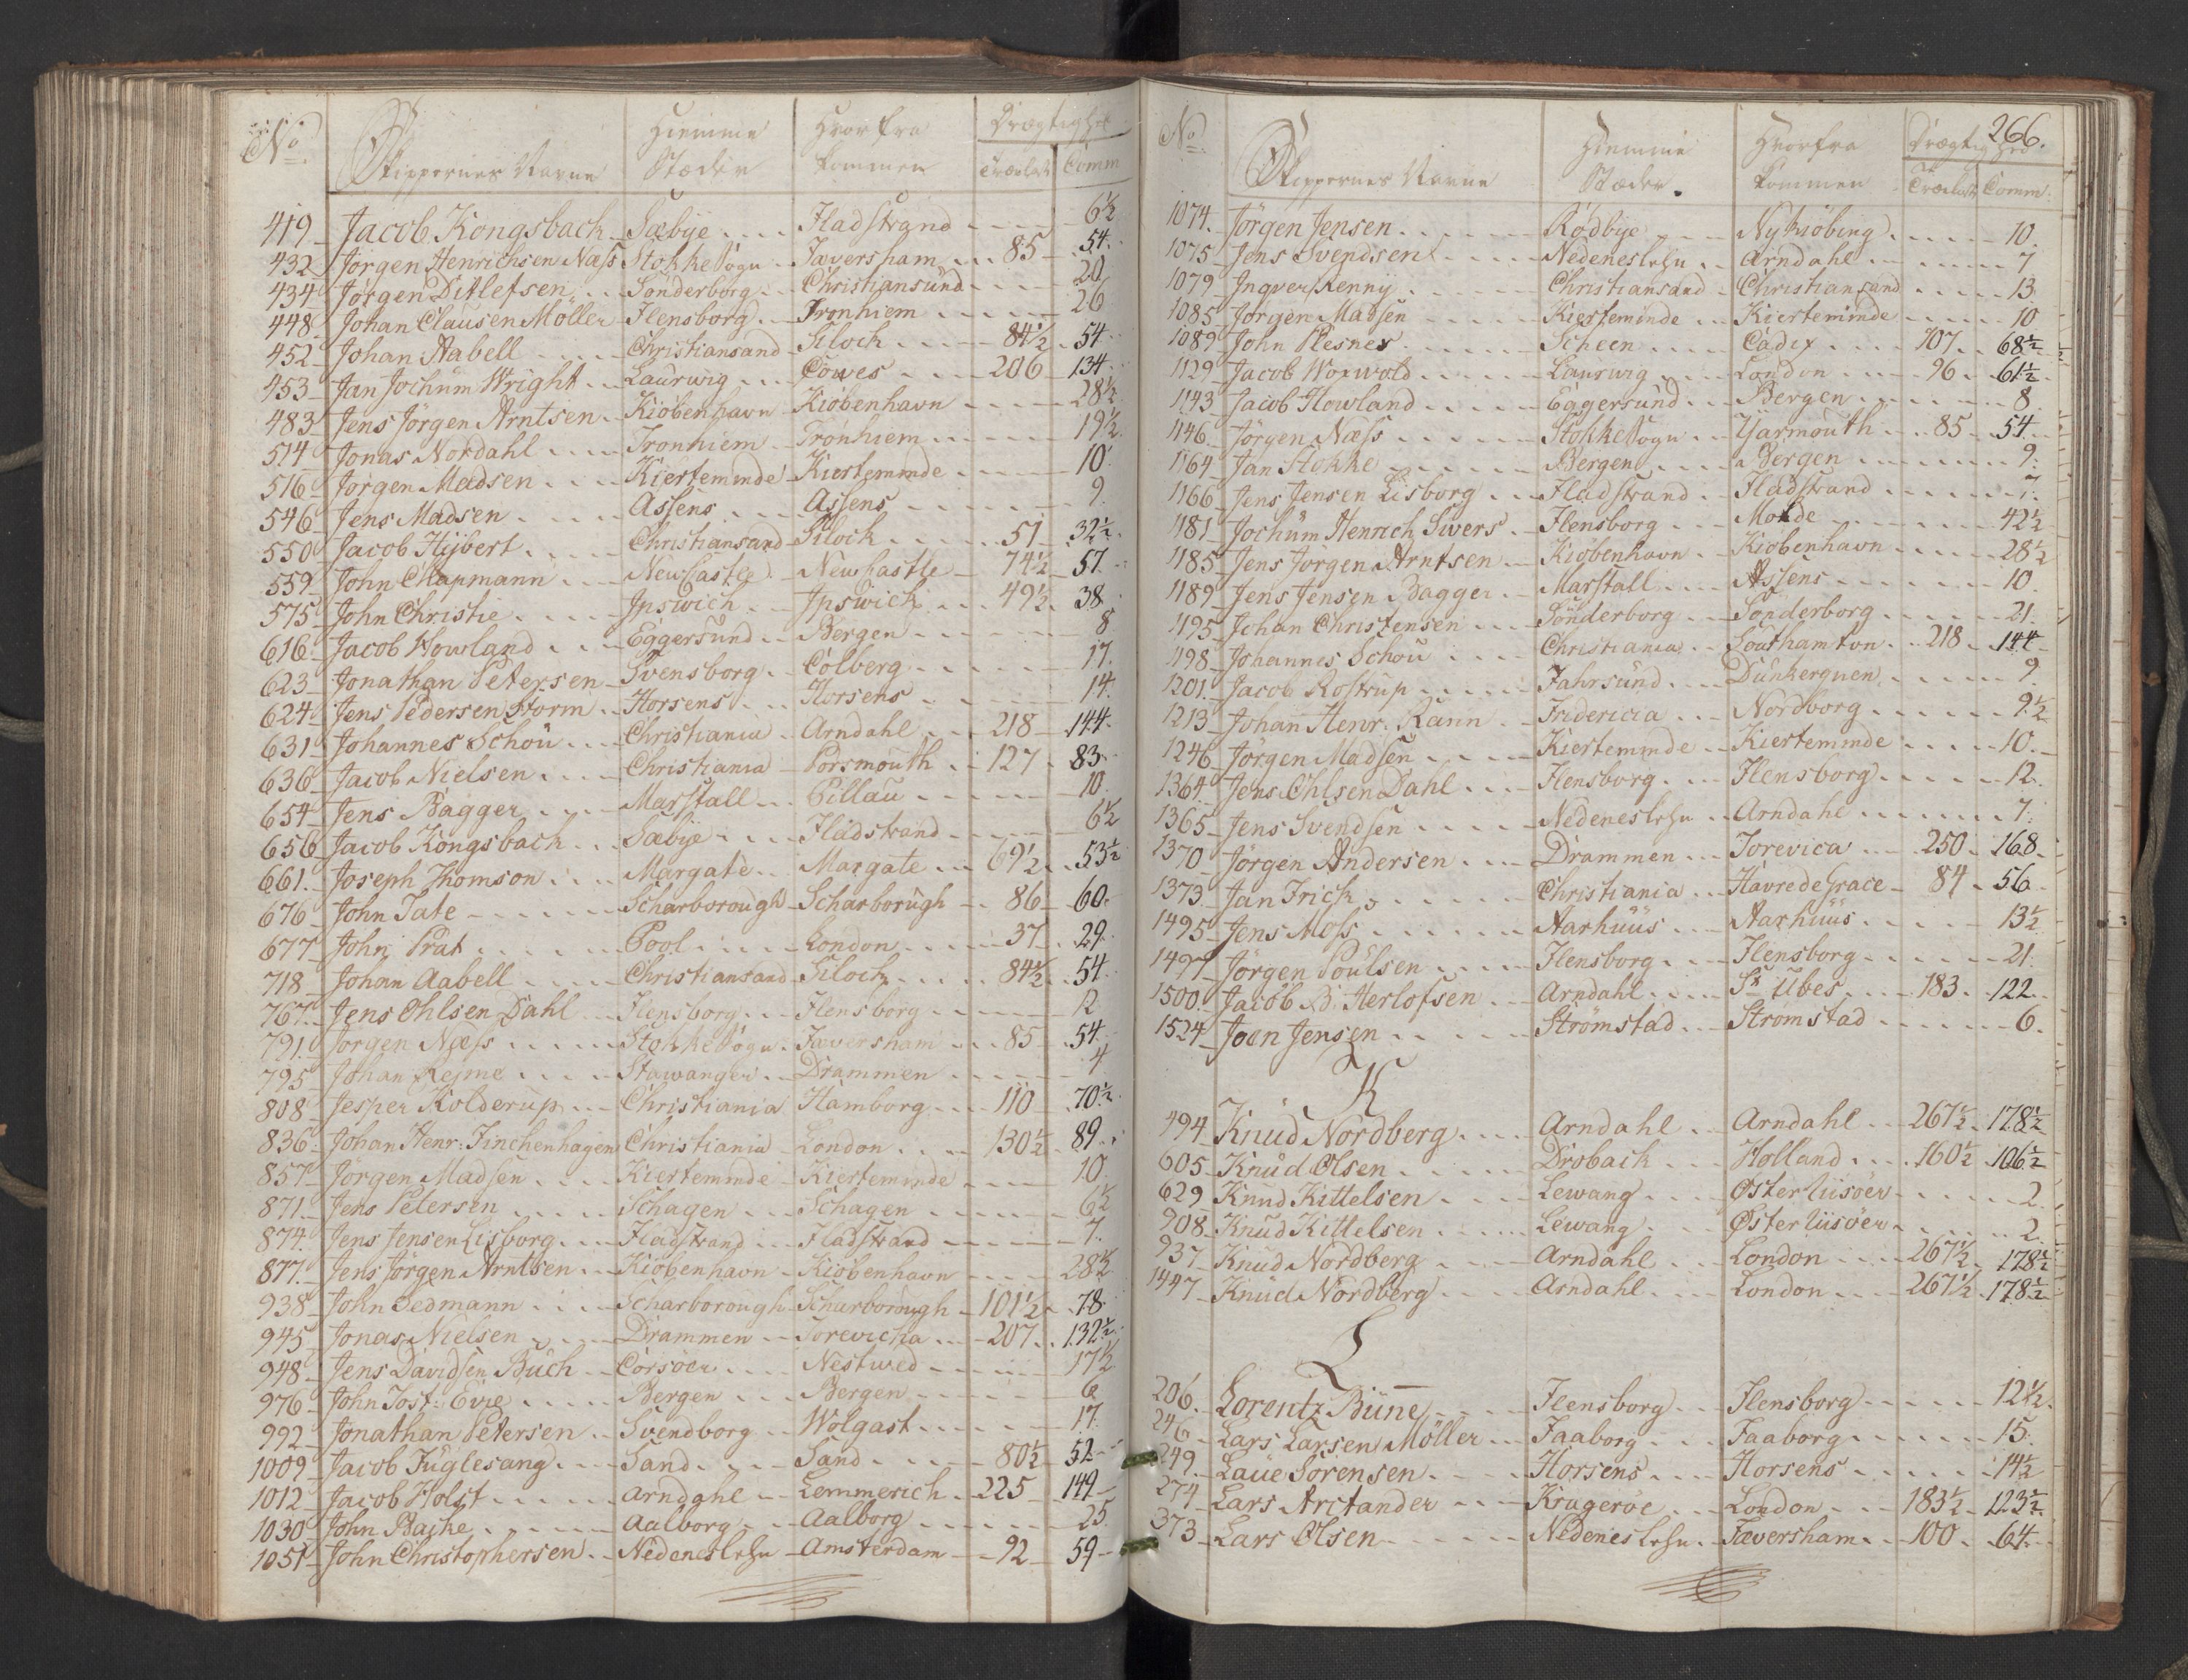 No Skippernes Navne Hiemme Stæder Hvorfra kommen Drægtighed Træelast Comm
419 Jacob Kongsbach Sæbye Fladstrand 6½
432 Jørgen Henrichsen Næss Stokke Sogn Faversham 85 54
434 Jörgen Ditlefsen Sönderborg Christiansünd 20
448 Johan Clausen Möller Flensborg Tronhiem 26
452 Johan Aabell Christiansand Kiloch 84½ 54
453 Jan Jochüm Wright Laurwig Cowes 206 134
483 Jens Jörgen Arntsen Kiöbenhavn Kiöbenhavn 28½
514 Jonas Nordahl Tronhiem Tronhiem 19½
516 Jörgen Madsen Kierteminde Kierteminde 10
546 Jens Madsen Assens Assens 9
550 Jacob Hijbert Christiansand Kiloch 51 32½
559 John Chapmann NewCastle NewCastle 74½ 57
575 John Christie Ipswich Ipswich 49½ 38
616 Jacob Howland Eggersund Bergen 8
623 Jonathan Petersen Svensborg Colberg 17
624 Jens Pedersen Storm Horsens Horsens 14
631 Johannes Schoü Christiania Arndahl 218 144
636 Jacob Nielsen Christiania Porsmouth 127 83
654 Jens Bagger Marstall Pillau 10
656 Jacob Kongsbach Sæbye Fladstrand 6½
661 Joseph Thomson Margate Margate 69½ 53½
676 John Tate Scharborough Scharborügh 86 60
677 John Prat Pool London 37 29
718 Johan Aabell Christiansand Kiloch 84½ 54
767 Jens Ohlsen Dahl Flensborg Flensborg 12
791 Jörgen Næss Stokke Sogn Faversham 85 54
795 Johan Rejme Stawanger Drammen 4
808 Jesper Kolderup Christiania Hamborg 110 70½
836 Johan Henr: Finchenhagen Christiania London 130½ 89
857 Jörgen Madsen Kierteminde Kierteminde 10
871 Jens Petersen Schagen Schagen 6½
874 Jens Jensen Lisborg Fladstrand Fladstrand 7
877 Jens Jörgen Arntsen Kiöbenhavn Kiöbenhavn 28½
938 John Tedmann Scharborough Scharborough 101½ 78
945 Jonas Nielsen Drammen Torevicha 207 132½
948 Jens Davidsen Büch Corsöer Nestwed 17½
976 John Jost: Evre Bergen Bergen 6
992 Jonathan Petersen Svendborg Wolgast 17
1009 Jacob Füglesang Sand Sand 80½ 52
1012 Jacob Holst Arndahl Lemmerich 225 149
1030 John Backe Aalborg Aalborg 25
1051 John Christophersen Nedeneslehn Amsterdam 92 59
266.
No Skippernes Navne Hiemme Stæder Hvorfra kommen Drægtighed Træelast Comm
1074 Jörgen Jensen Rödbye Nykiöbing 10
1075 Jens Svendsen Nedeneslehn Arndahl 7
1079 Ingver Renny Christiansand Christiansand 13
1085 Jörgen Madsen Kierteminde Kierteminde 10
1089 John Plesner Scheen Cadix 107 68½
1129 Jacob Woxwold Laurwig London 96 61½
1143 Jacob Howland Eggersünd Bergen 8
1146 Jörgen Næss Stokke Sogn Yarmouth 85 54
1164 Jan Stokke Bergen Bergen 9
1166 Jens Jensen Lisborg Fladstrand Fladstrand 7
1181 Jochüm Henrich Sivers Flensborg Molde 42½
1185 Jens Jörgen Arntsen Kiöbenhavn Kiöbenhavn 28½
1189 Jens Jensen Bagger Marstall Assens 10
1195 Johan Christensen Sönderborg Sönderborg 21
1198 Johannes Schou Christiania Southamton 218 144
1201 Jacob Rostrup Fahrsünd Dünkerquen 9
1213 Johan Henr: Rann Fridericia Nordborg 9½
1246 Jörgen Madsen Kierteminde Kierteminde 10
1364 Jens Ohlsen Dahl Flensborg Flensborg 12
1365 Jens Svendsen Nedeneslehn Arndahl 7
1370 Jörgen Andersen Drammen Torevica 250 168
1373 Jan Frich Christiania Havre de Grace 84 56
1495 Jens Moss Aarhüüs Aarhüüs 13½
1497 Jörgen Poülsen Flensborg Flensborg 21
1500 Jacob B. Herlofsen Arndahl St Übes 183 122
1524 Joen Jensen Strömstad Stromstad 6
K
494 Knüd Nordberg Arndahl Arndahl 267½ 178½
605 Knüd Olsen Drobach Holland 160½ 106½
629 Knud Kittelsen Lewang Øster Riisöer 2
908 Knüd Kittelsen Lewang Øster Riisöer 2
937 Knüd Nordberg Arndahl London 267½ 178½
1447 Knüd Nordberg Arndahl London 267½ 178½
L
206 Lorentz Büne Flensborg Flensborg 12½
246 Lars Larsen Möller Faaborg Faaborg 15
249 Laue Sörensen Horsens Horsens 14½
274 Lars Arctander Kragerøe London 183½ 123½
373 Lars Olsen Nedeneslehn Faversham 100 64